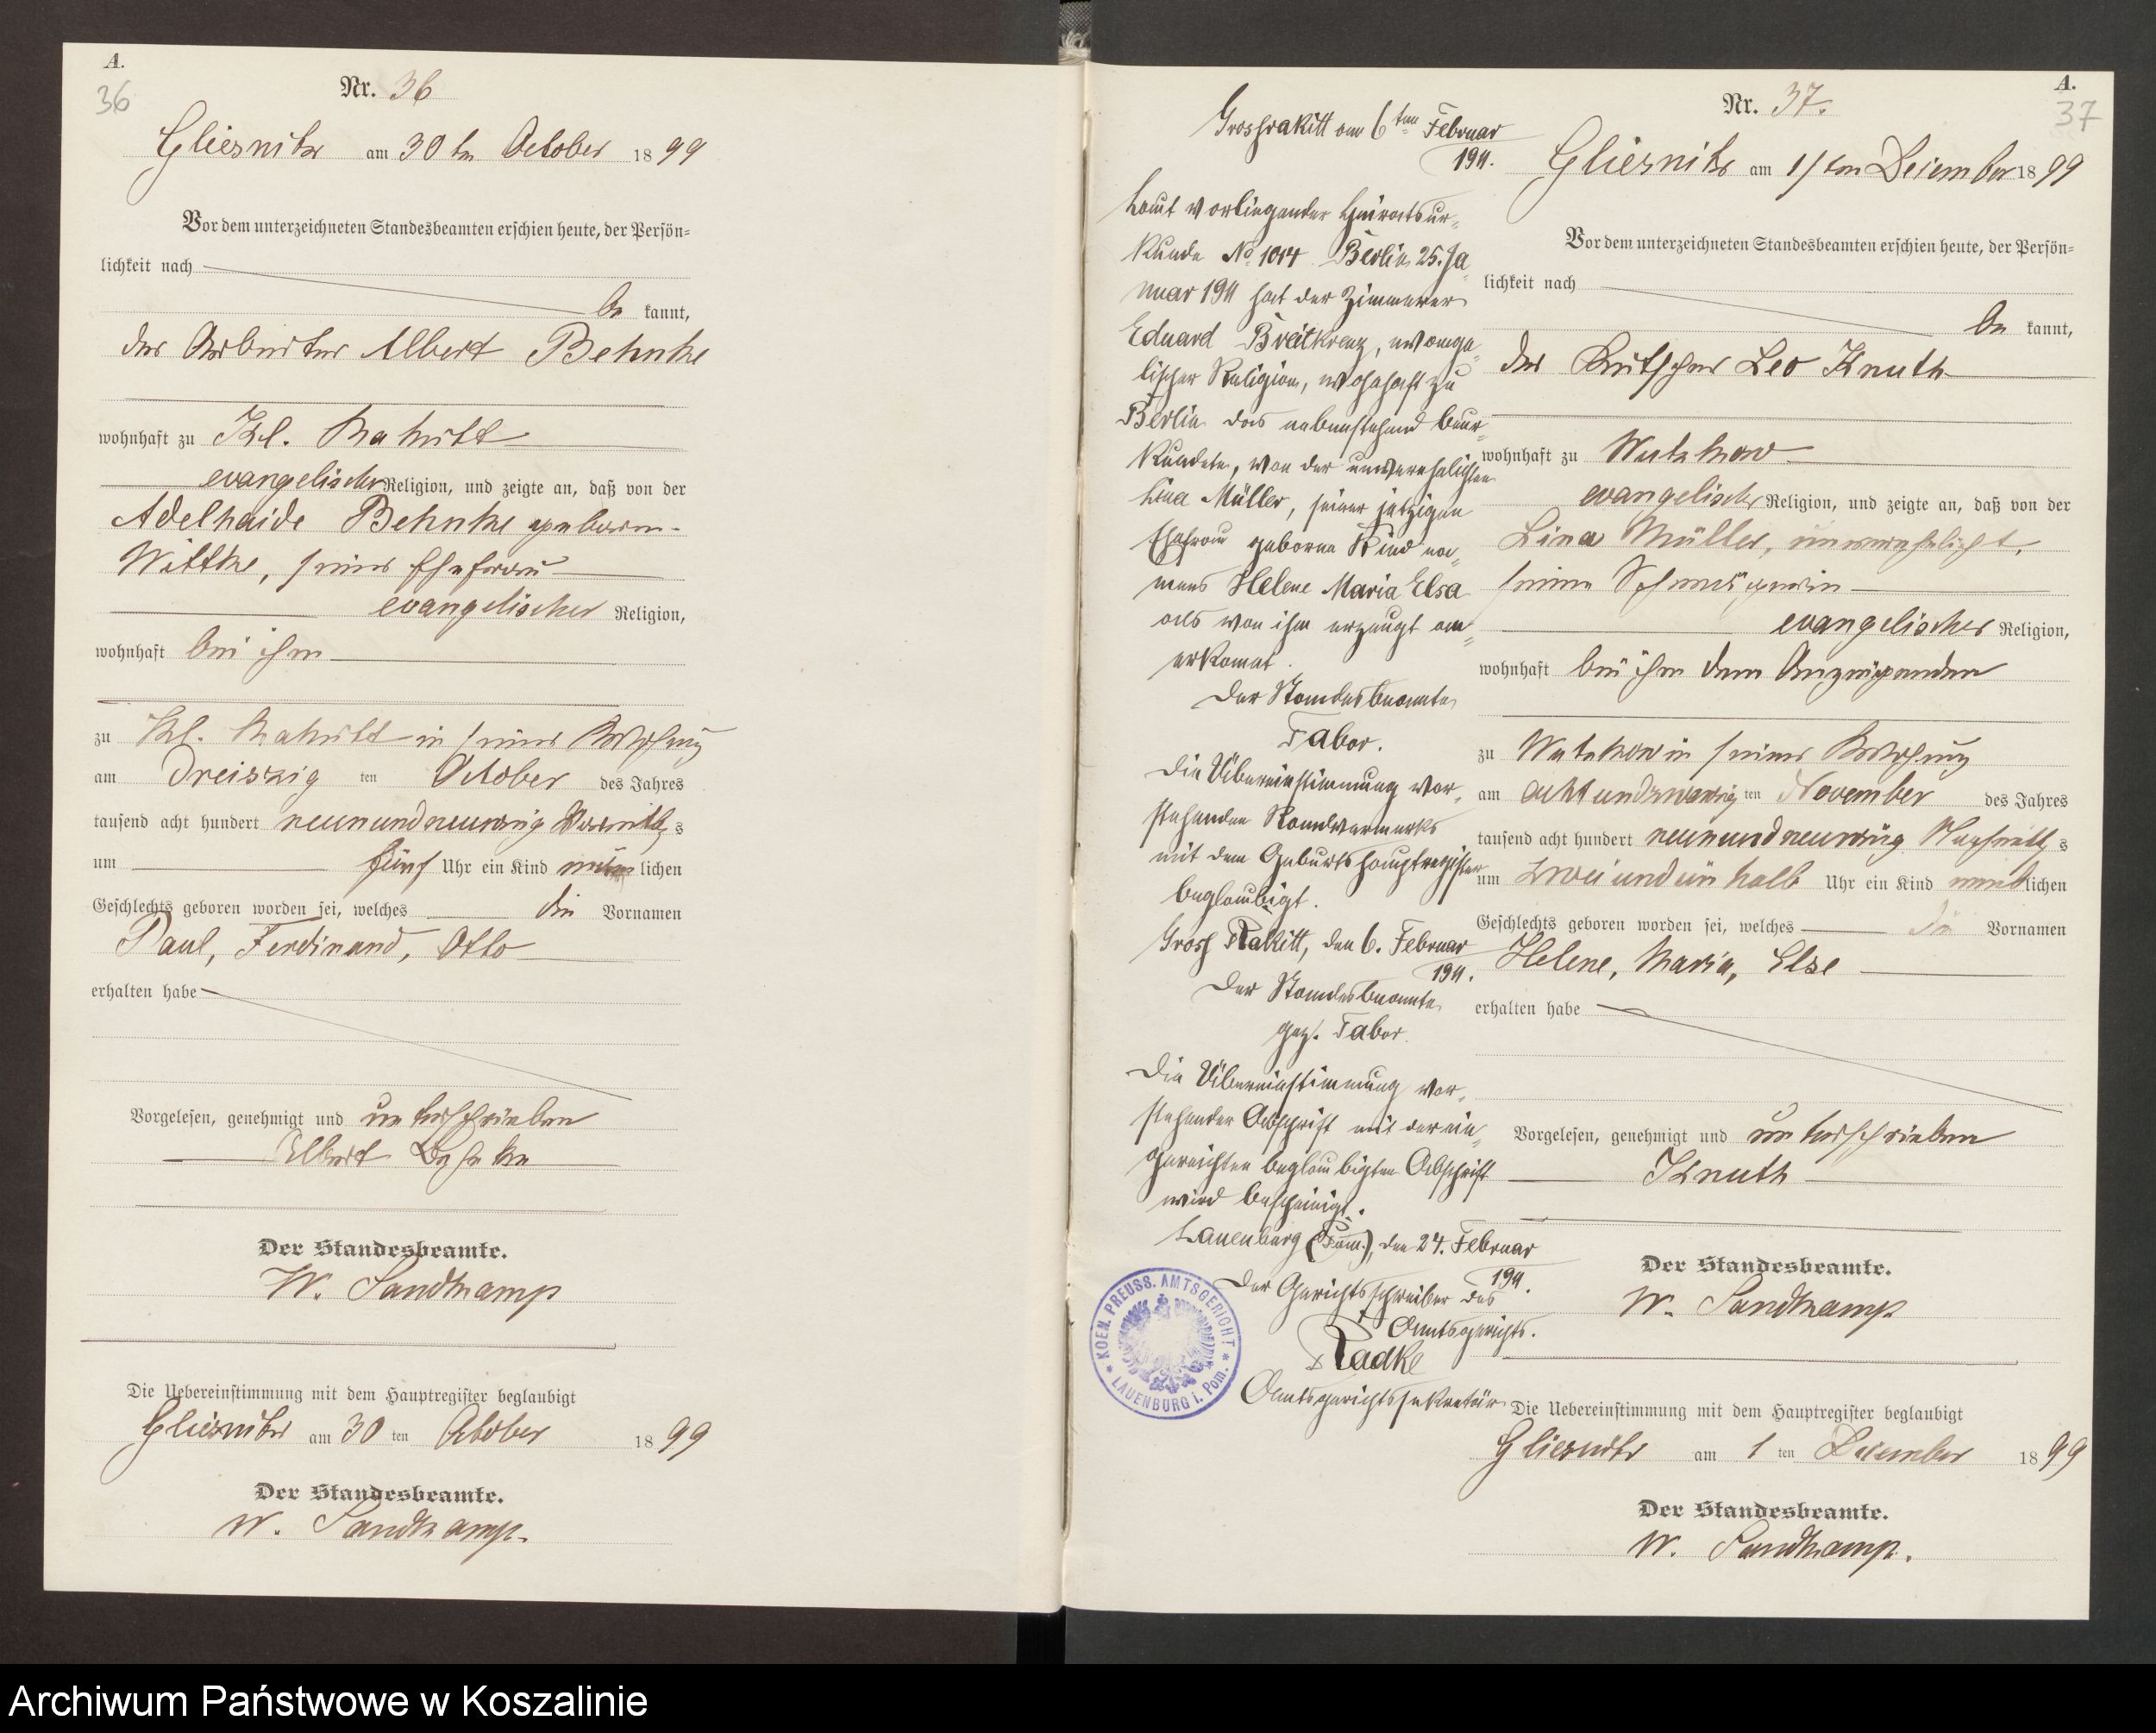 A.
36
Nr. 36
Gliesnitz am 30 ten October 1899
Vor dem unterzeichneten Standesbeamten erschien heute, der Persön-
lichkeit nach
be kannt,
der Arbeiter Albert Behnke
wohnhaft zu Kl. Rakitt
evangelischer Religion, und zeigte an, daß von der
Adelhaide Behnke geboren-
Witthe, seiner Ehefrau
evangelischer Religion,
wohnhaft bei ihm
zu Kl. Rakitt in seiner Wohnung
am Dreiszig ten October des Jahres
tausend acht hundert neunundneunzig Vormittags
um fünf Uhr ein Kind männlichen
Geschlechts geboren worden sei, welches die Vornamen
Paul, Ferdinand, Otto
erhalten habe
Vorgelesen, genehmigt und unterschrieben
Albert Behnke
Der Standesbeamte.
W. Sandkamp
Die Uebereinstimmung mit dem Hauptregister beglaubigt
Gliesnitz am 30 ten October 1899
Der Standesbeamte.
W. Sandkamp.
Grossrakitt am 6ten Februar
1911.
Laut vorliegender Heiratsur-
kunde No 1014 Berlin 25. Ja-
nuar 1911 hat der Zimmerer
Eduard Breitkreuz, evange-
lischer Religion, wohnhaft zu
Berlin das nebenstehend beur-
kundete, von der unverehelichten
Lina Müller, seiner jetzigen
Ehefrau geborene Kind na-
mens Helene Maria Elsa
als von ihm erzeugt an-
erkannt.
Der Standesbeamte
Tabor.
Die Übereinstimmung vor-
stehenden Randvermerks
mit dem Geburtshauptregister
beglaubigt.
Gross Rakitt, den 6. Februar
1911.
Der Standesbeamte
gez. Tabor.
Die Übereinstimmung vor-
stehender Abschrift mit der ein-
gereichten beglaubigten Abschrift
wird bescheinigt.
Lauenburg (Pom.), den 24. Februar
1911.
Der Gerichtsschreiber des
Amtsgerichts.
Radke
Amtsgerichtssekretär
KOEN. PREUSS. AMTSGERICHT * LAUENBURG i. Pom. *
A.
37
Nr. 37.
Gliesnitz am 1 ten Dezember 1899
Vor dem unterzeichneten Standesbeamten erschien heute, der Persön-
lichkeit nach
be kannt,
der Kutscher Leo Knuth
wohnhaft zu Wutzkow
evangelischer Religion, und zeigte an, daß von der
Lina Müller, unverehelicht,
seine Schwägerin
evangelischer Religion,
wohnhaft bei ihm dem Anzeigenden
zu Wutzkow in seiner Wohnung
am achtundzwanzig ten November des Jahres
tausend acht hundert neunundneunzig Nachmittags
um zwei und ein halb Uhr ein Kind weiblichen
Geschlechts geboren worden sei, welches die Vornamen
Helene, Maria, Else
erhalten habe
Vorgelesen, genehmigt und unterschrieben
Knuth
Der Standesbeamte.
W. Sandkamp
Die Uebereinstimmung mit dem Hauptregister beglaubigt
Gliesnitz am 1 ten Dezember 1899
Der Standesbeamte.
W. Sandkamp.
Archiwum Państwowe w Koszalinie